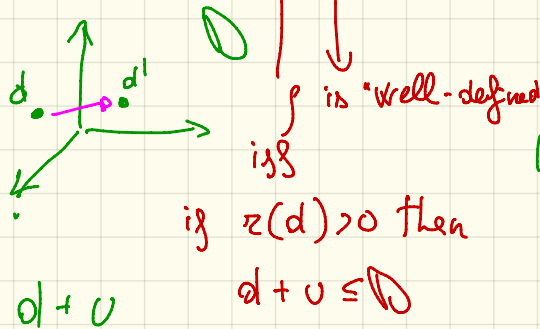 D
d d'
f is "well-defined
iff
if r(d)>0 then
d + v ≤ D
d + v